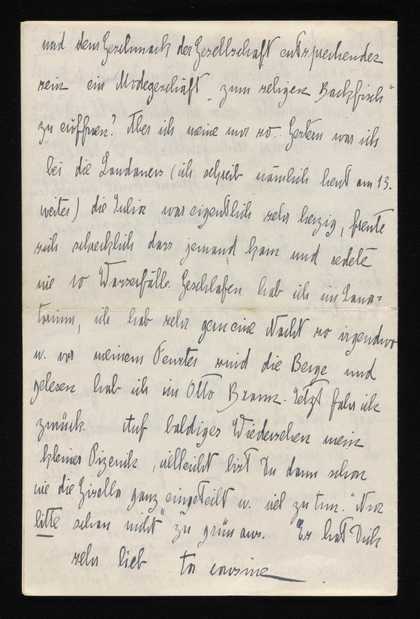 und dem Geschmack der Gesellschaft entsprechender
sein ein Modegeschäft "zum seligen Backfisch"
zu eröffnen? Aber ich meine nur so. Gestern war ich
bei die Landauers (ich schreib nämlich heut am 13.
weiter) die Julia war eigentlich sehr herzig, freute
sich schrecklich dass jemand kam und redete
wie 10 Wasserfälle. Geschlafen hab ich im Sana-
torium, ich hab sehr gern eine Nacht so irgendwo
u. vor meinem Fenster sind die Berge und
gelesen hab ich im Otto Braun. Jetzt fahr ich
zurück Auf baldiges Wiedersehen mein
kleines, vielleicht bist Du dann schon
wie die Gisella ganz eingeteilt u. viel zu tun. "Nur
bitte schau nicht" zu grün aus. Es hat Dich
sehr lieb ta cousine